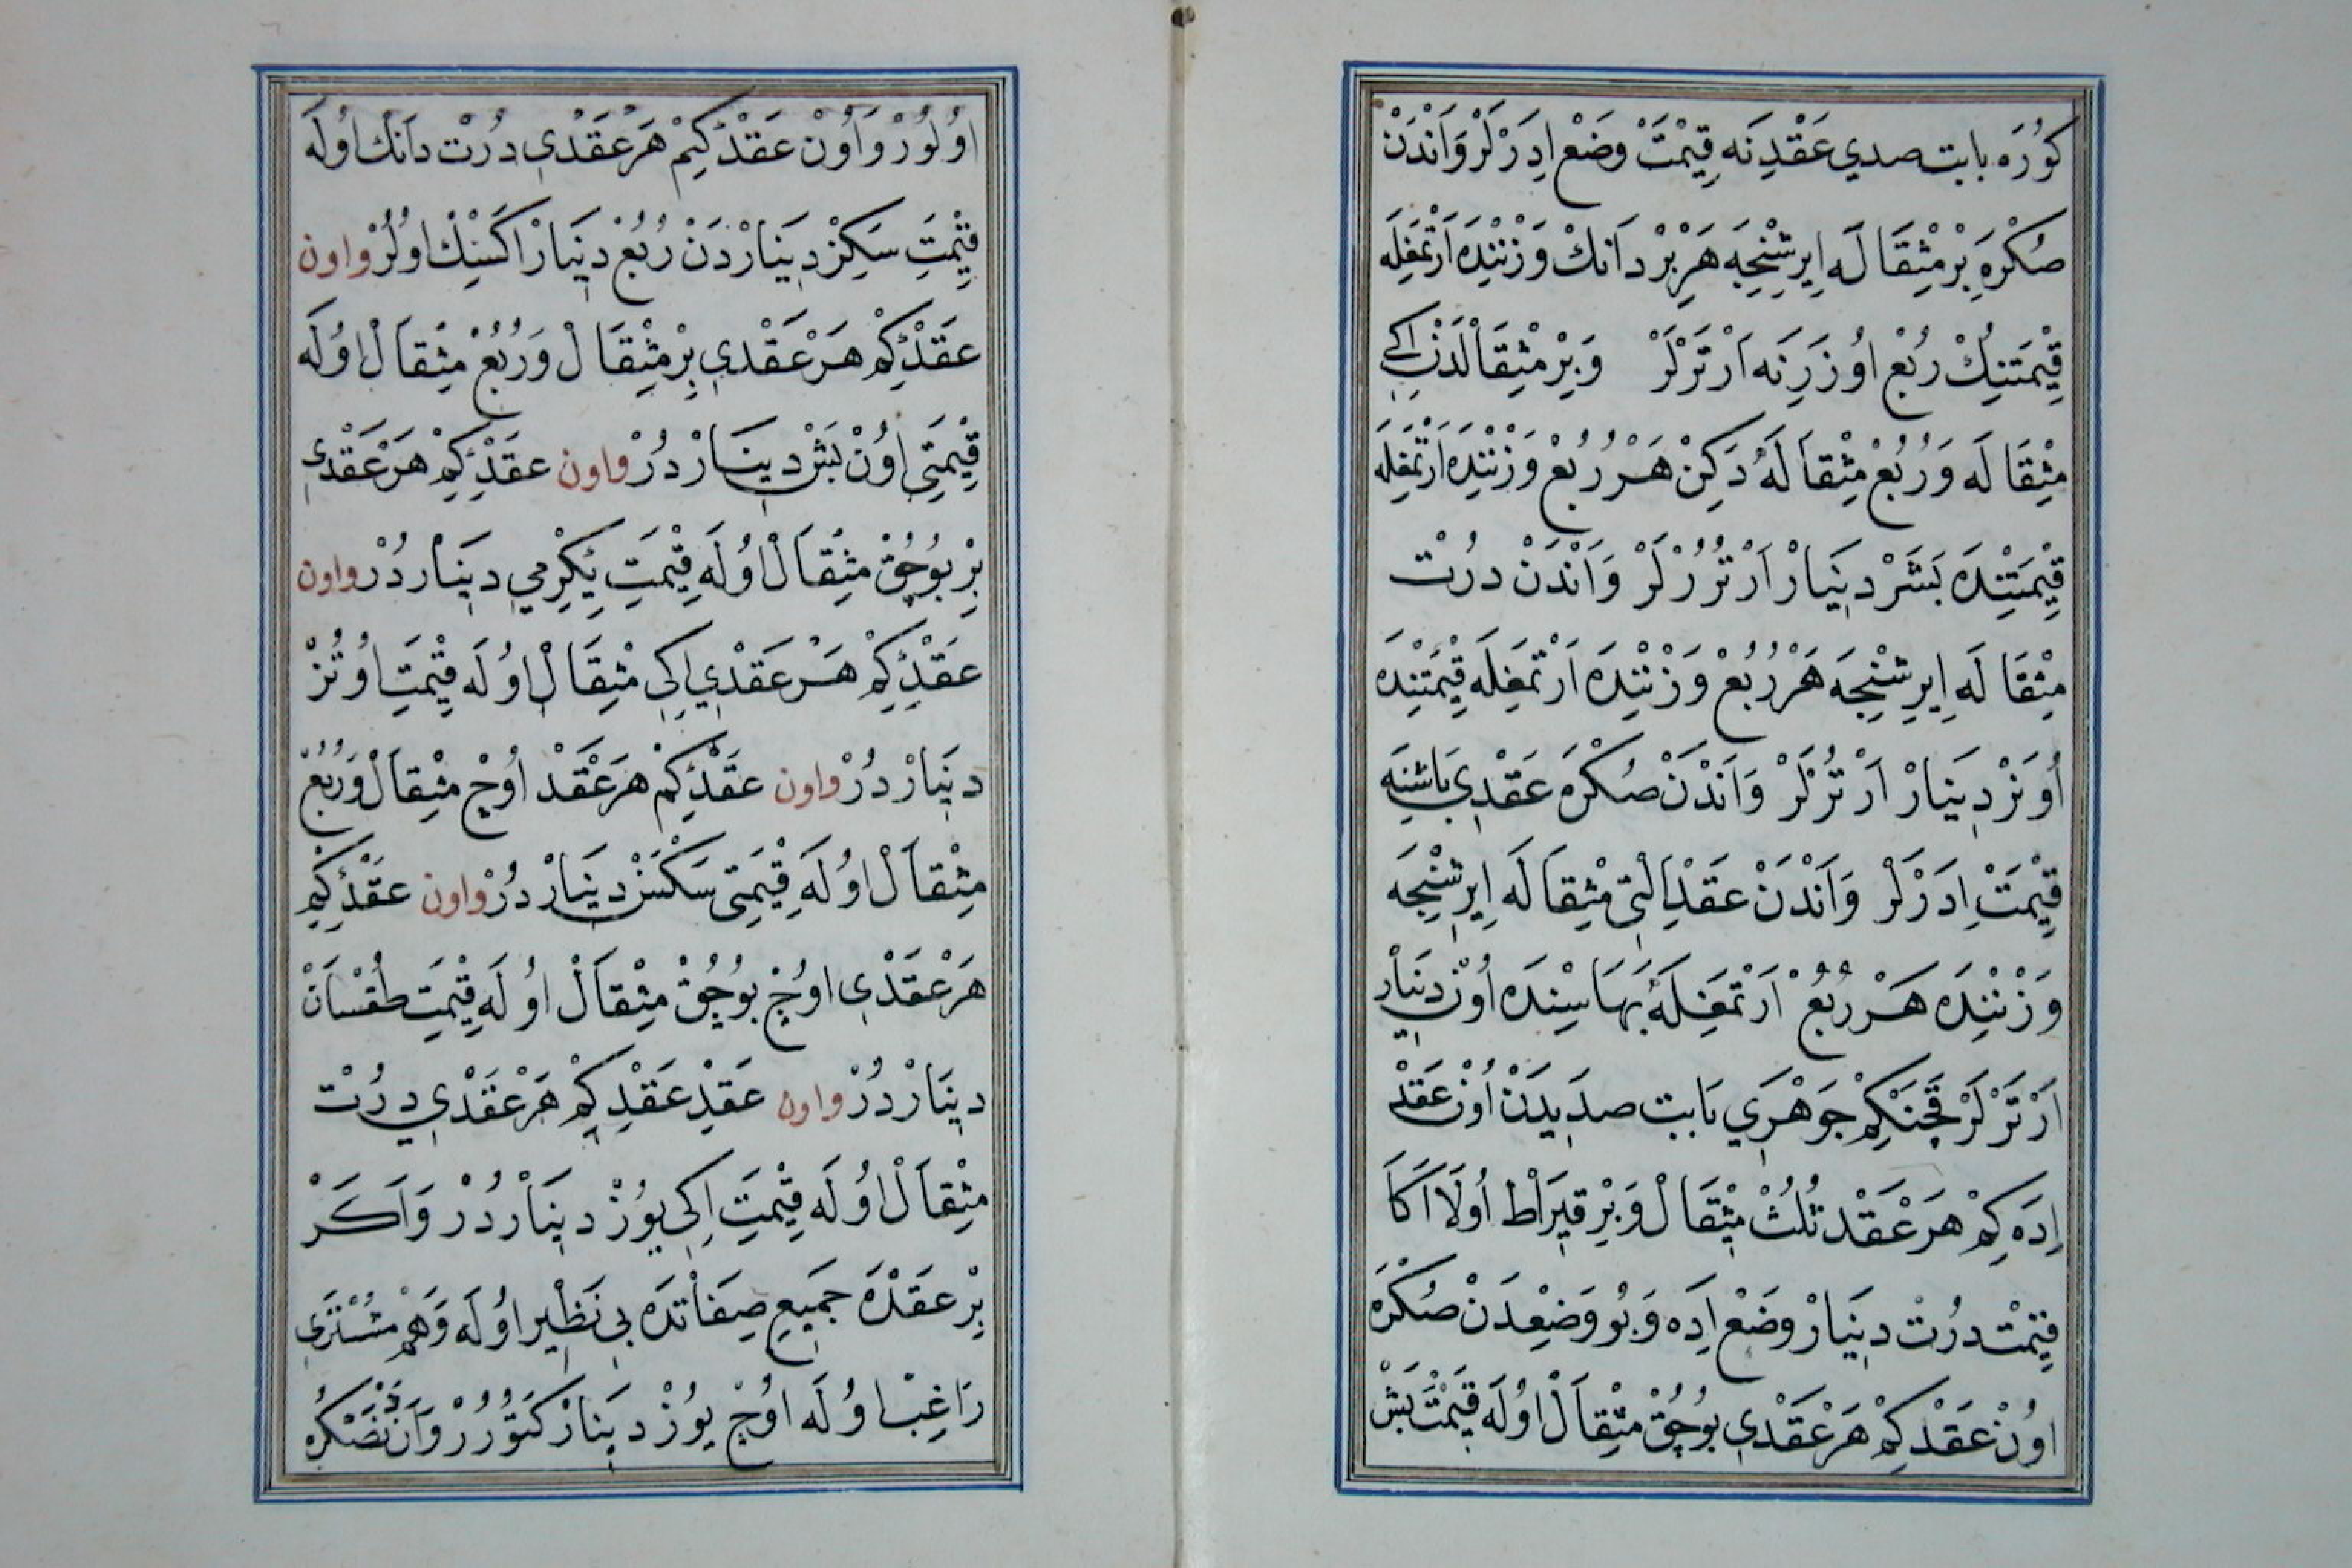 كُورَه بابت صدي عَقْدِنَه قِيْمَتْ وَضْع اِدَرْلَرْ وَاَنْدَنْ
صُكْرَه بِرْ مِثْقَالَه اِيرِشِنْجَه هَرْ بِرْ دَانَكْ وَزْنِنْدَه اَرْتمَغِلَه
قِيْمَتنِكْ رُبْع اُوزَرِنَه اَرْتَرْلَرْ وَبِرْ مِثْقَالْدَنْ اِكِي
مِثْقَالَه وَرُبْع مِثْقَالَه دَكِنْ هَرْ رُبْع وَزْنِنْدَه اَرْتْمَغِلَه
قِيْمَتِنْدَه بَشَرْ دِينَارْ اَرْتُرُرْلَرْ وَاَنْدَنْ دُرْت
مِثْقَالَه اِيرِشِنْجَه هَرْ رُبْع وَزْنِنْدَه اَرْتْمَغِلَه قِيْمَتِنْدَه
اُونَرْ دِينَارْ اَرْتُرْلَرْ وَاَنْدَنْ صُكْرَه عَقْدِي بَاشِنَه
قِيْمَتْ اِدَرْلَرْ وَاَنْدَنْ عَقْدِ اَلْتِي مِثْقَالَه اِيرِشِنْجَه
وَزْنِنْدَه هَرْ رُبُعْ اَرْتْمَغِلَه بَهَاسِنْدَه اُونْ دِينَار
اَرْتَرْلَرْ قَچَنكِمْ جَوْهَرِي بَابت صدَيِدَنْ اُونْ عَقْدْ
اِدَه كِمْ هَرْ عَقْد ثُلُثْ مِثْقَالْ وَبِرْ قِيرَاطْ اُولَا اَكَا
قِيْمَتْ دُرْت دِينَارْ وَضْعْ اِدَه وَبُو وَضِعْدَنْ صُكْرَه
اُونْ عَقْدْ كِمْ هَرْ عَقْدِي بُوچُقْ مِثْقَالْ اُولَه قِيَمْتْ بَشْ
اُولُورْ وَاُونْ عَقْدْكِيمْ هَرْ عَقْدِي دُرْت دَانَكْ اُولَه
قِيْمَتِ سَكِزْ دِينَارْدَنْ رُبُعْ دِينَارْ اَكْسِكْ اُولُرْ واون
عَقْدْكِمْ هَرْ عَقْدِي بِرْ مِثْقَالْ وَرُبُعْ مِثِقَالْ اُولَه
قِيْمَتِي اُونْ بَشْ دِينَارْدُرْ واون عَقْدِكِمْ هَرْ عَقْدِي
بِرْ بُوچُقْ مِثْقَالْ اُولَه قِيْمَتِ يِكِرْمِي دِينَارْدُرْ واون
عَقْدِكِمْ هَرْ عَقْدِي اِكِي مْثِقَالْ اُولَه قِيْمَتِ اُوتُزْ
دِينَارْدُرْ واون عَقْدْكِمْ هَرْ عَقْدْ اُوچْ مِثْقَالْ وَرُبُعْ
مِثْقَالْ اُولَه قِيْمَتِي سَكْسَنْ دِينَارْدُرْ واون عَقْدِكِيمْ
هَرْ عَقْدِي اُوچْ بُوچُقْ مِثْقَالْ اُولَه قِيْمَتِ طُقْسَانْ
دِينَارْدُرْ واون عَقْدِ عَقْدِكِمْ هَرْ عَقْدِي دُرْت
مِثْقَالْ اُولَه قِيْمَتِ اِكِي يُوزْ دِينَارْدُرْ وَاَكَرْ
بِرْ عَقْدَه جَمِيعِ صِفَاتدَه بِي نَظِير اُولَه وَهَمْ مُشْتَرِي
رَاغِبْ اُولَه اُوچْ يُوزْ دِينَارْ كَتُورُرْ وَاَنْدَنْ صَكْرَه